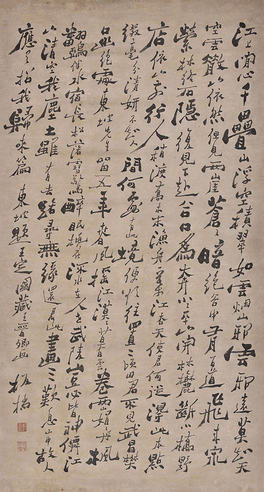 江上愁心千疊山浮空積翠如雲烟山邪雲邪遠莫知烟
空雲散山依然但見兩崖蒼蒼暗絕谷中有百道飛來泉
縈林絡石隱復見下赴谷口為奔川川平山開林麓斷小橋野
店依山前行人稍度喬木外漁舟一葉江吞天使君何從得此本點
綴毫末分清妍不知人間何處有此境便欲往買二頃田君不見武昌樊
口幽絕處東坡先生留五年春風搖江天漠漠暮雲卷雨山娟娟丹楓
翻鴉伴水宿長松落雪驚醉眠桃花流水在人世武陵豈必皆神仙江
山清空我塵土雖有去路尋無緣還君此畫三歎息山中故人
應有招我歸來篇 東坡題王定國藏王晉卿畫 板橋